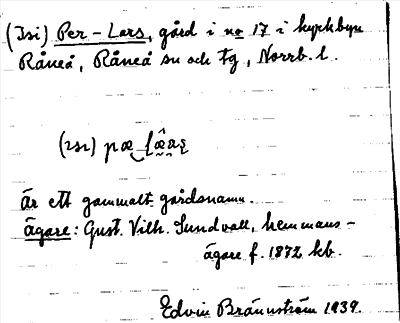 (Isi) Per-Lars, gård i no 17 i kyrkbyn
Råneå, Råneå sn och tg, Norrb. l.
är ett gammalt gårdsnamn.
ägare: Gust. Vilh. Sundvall, hemmans-
ägare f. 1872 kb.
Edvin Brännström 1939.